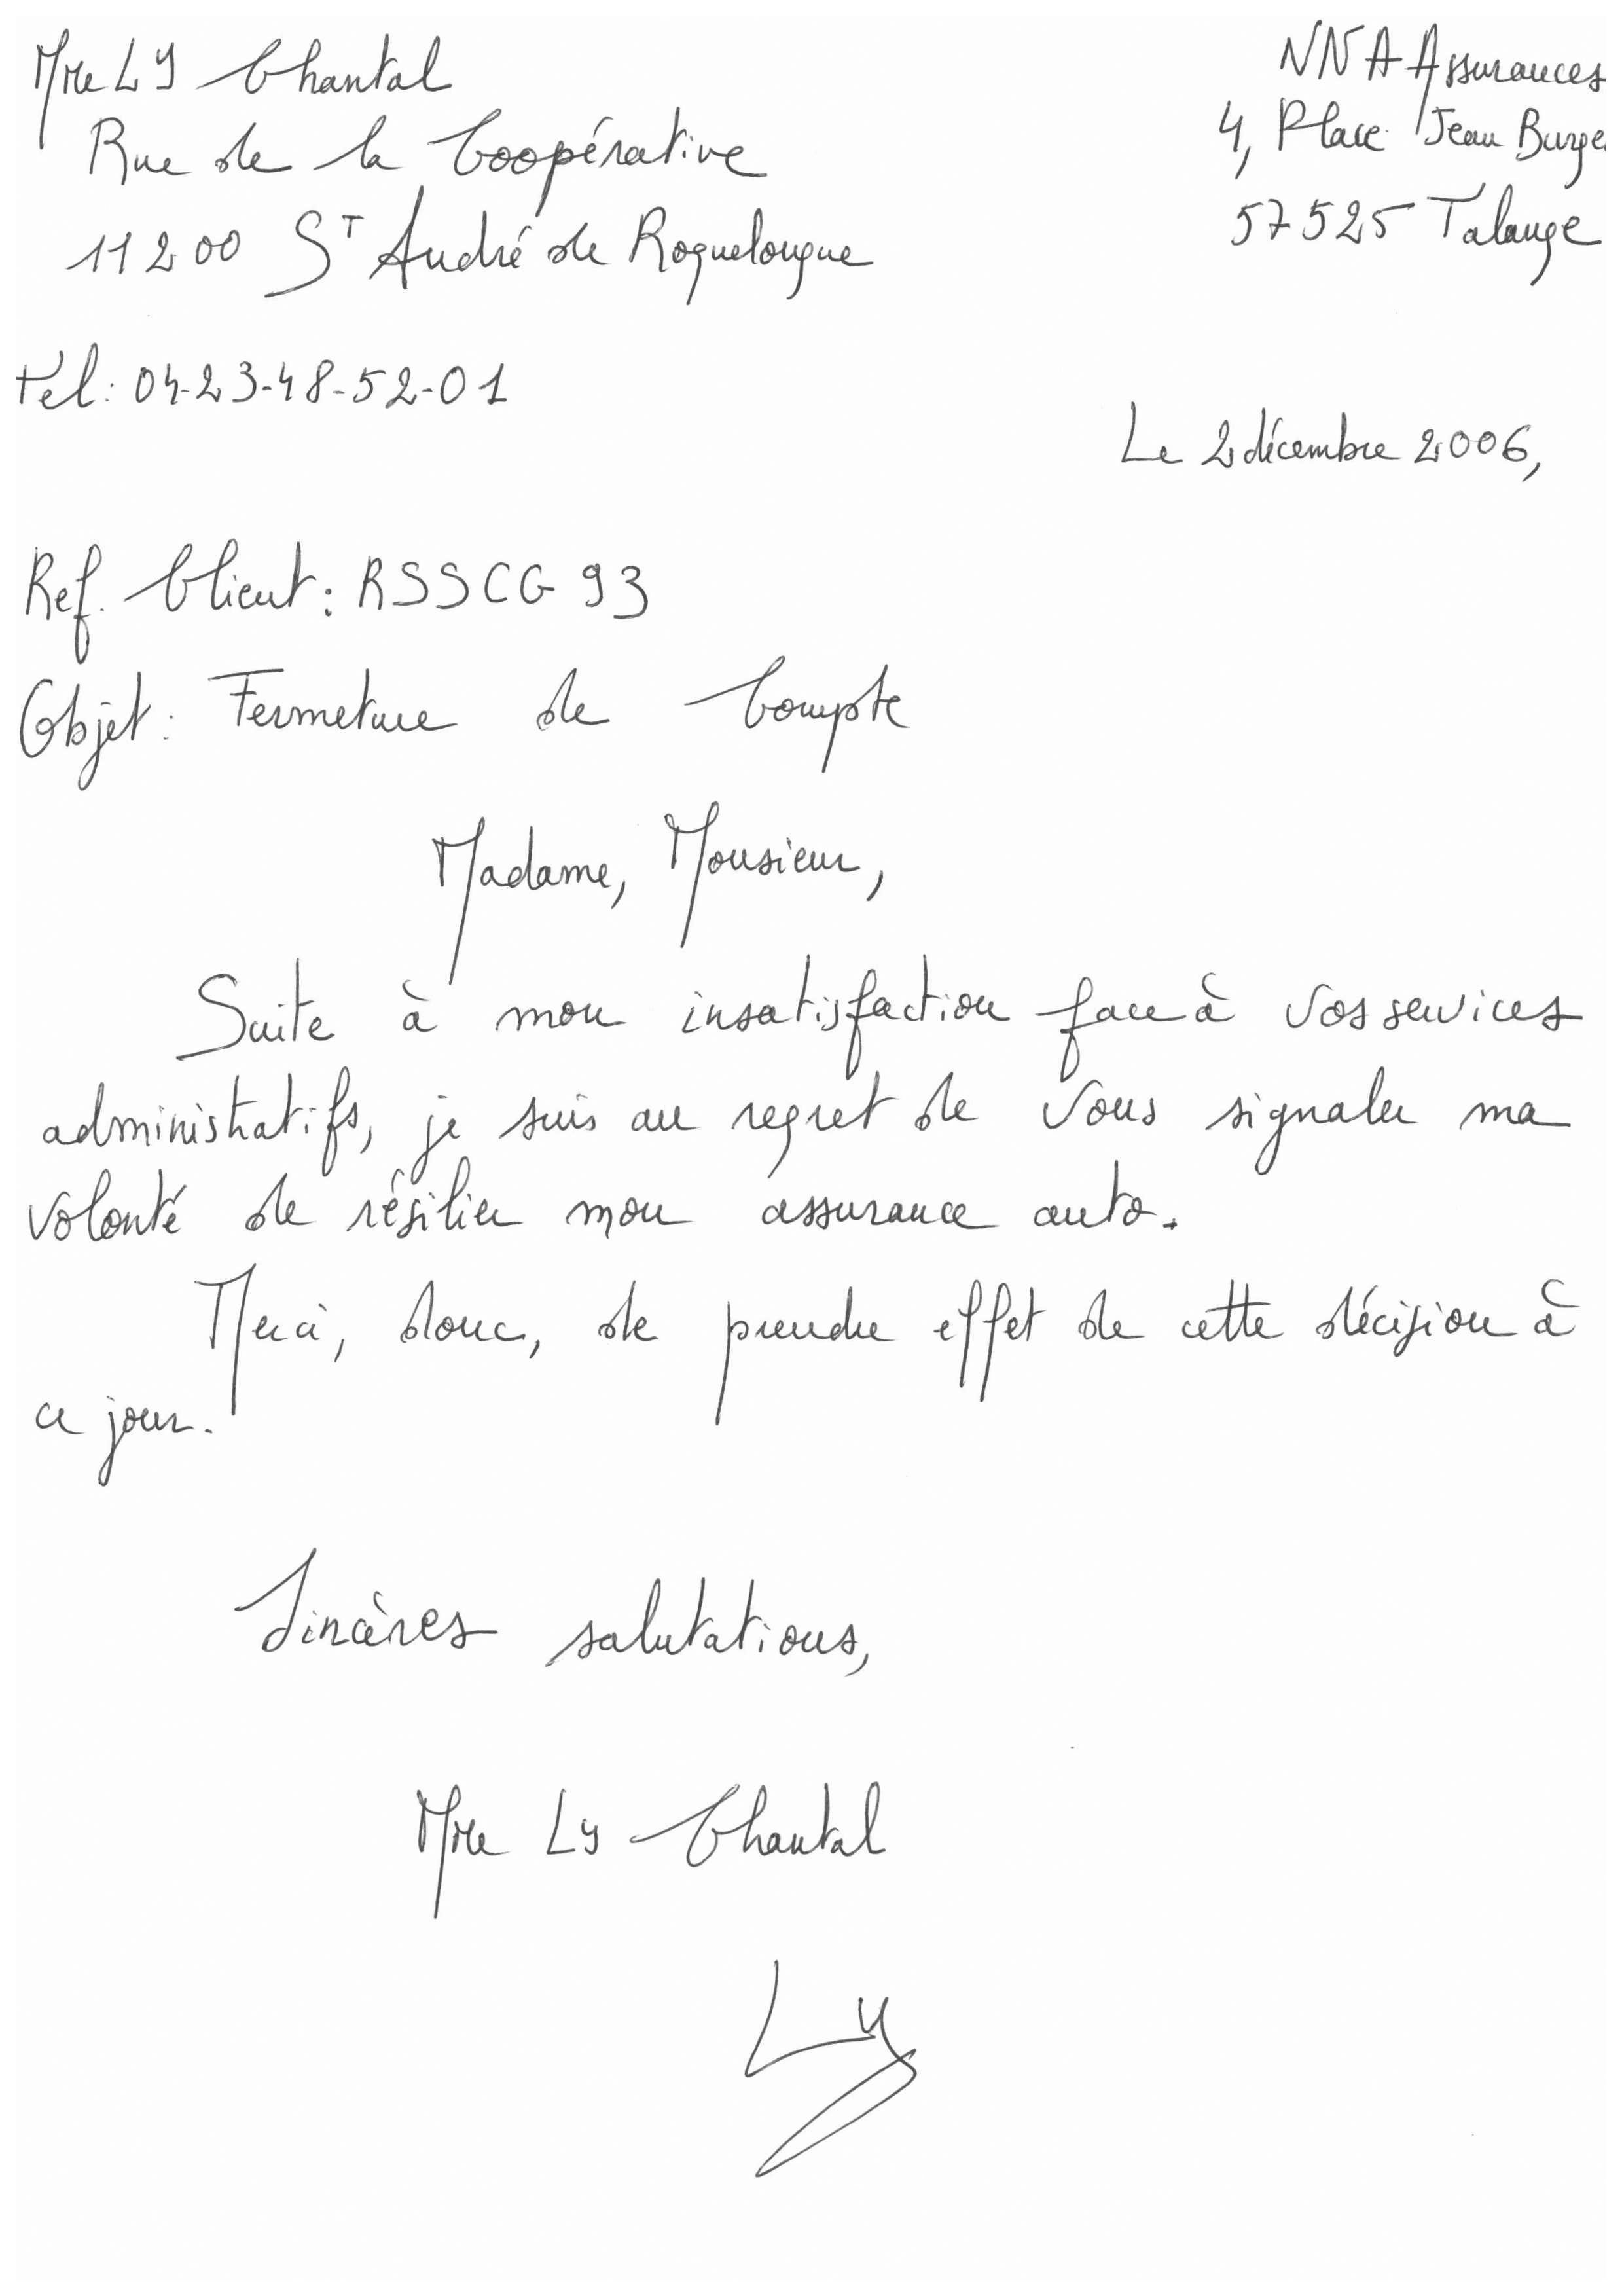 Mme LY Chantal
Rue de la Coopérative
11200 St André de Roquelongue
Tel: 04-23-48-52-01
NNA Assurances
4, Place Jean Burge
57525 Talange
Le 2 décembre 2006,
Ref. Client: RSSCG 93
Objet: Fermeture de Compte
Madame, Monsieur,
Suite à mon insatisfaction face à vos services
administratifs, je suis au regret de vous signaler ma
volonté de résilier mon assurance auto.
Merci, donc, de prendre effet de cette décision à
ce jour.
Sincères salutations,
Mme Ly Chantal
Ly